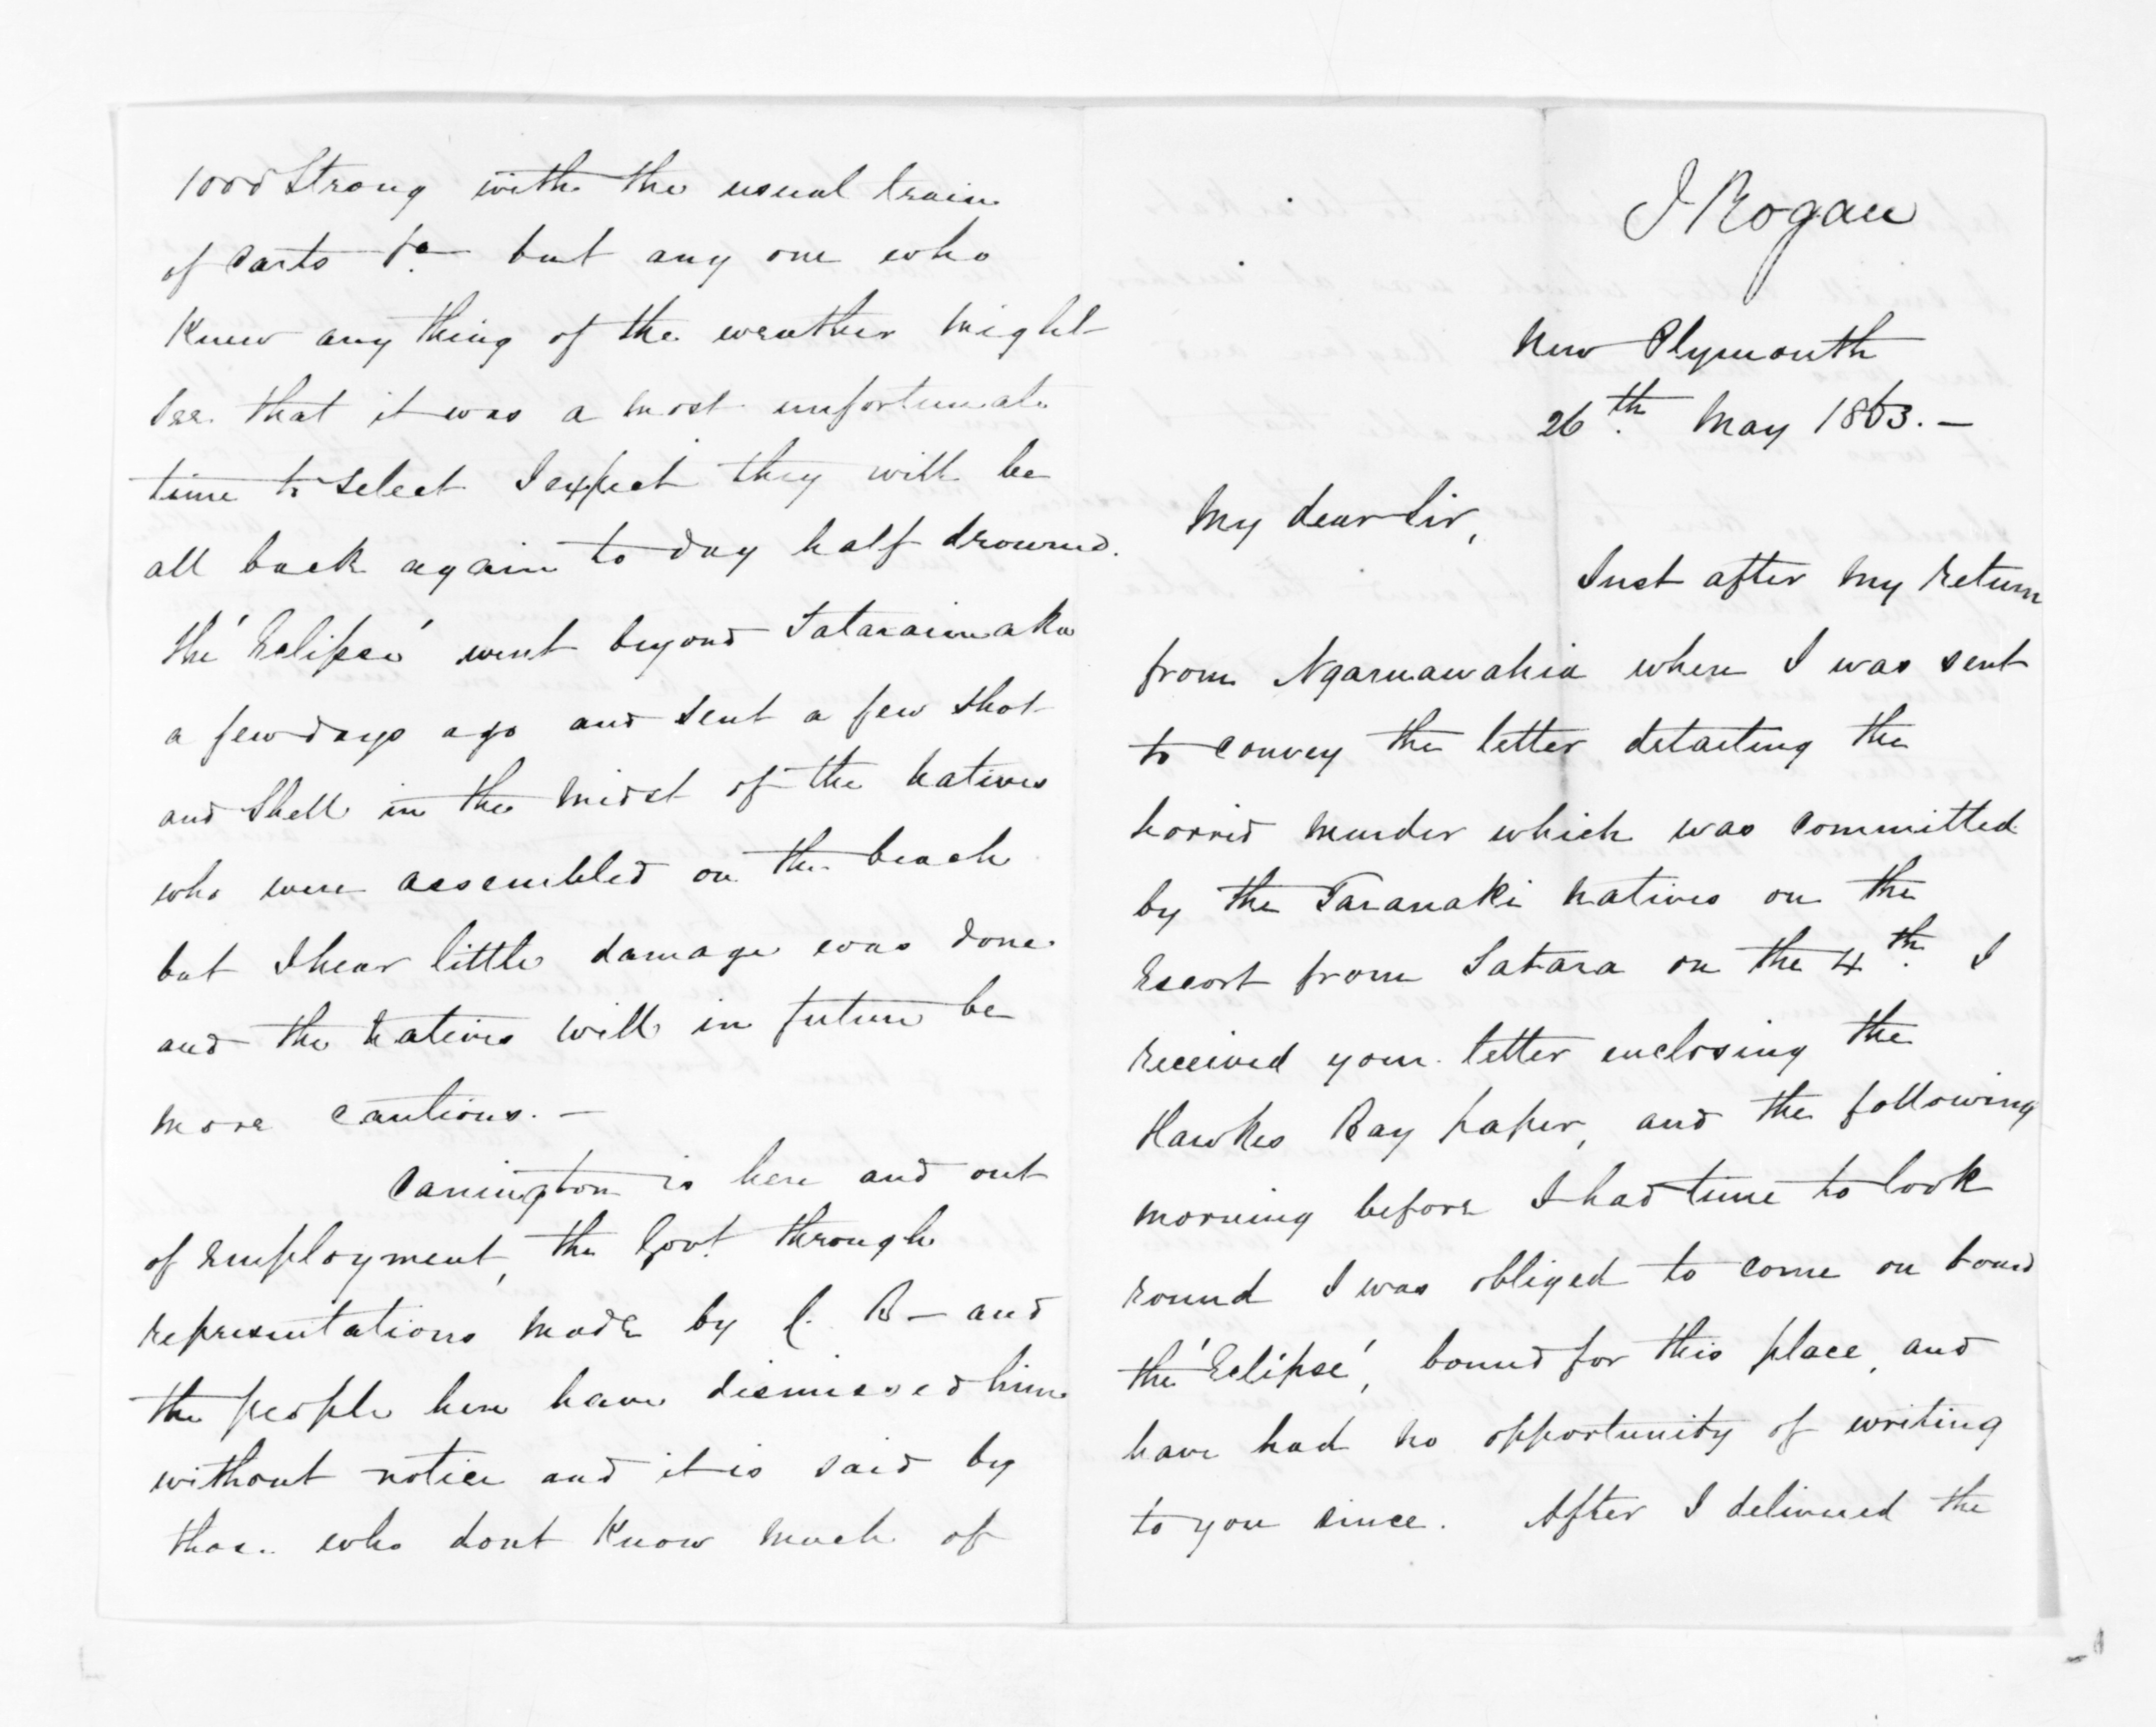 J Rogan
New Plymouth
26th May 1863. —
My dear Sir,
Just after my return
from Ngaruawahia where I was sent
to convey the letter detailing the
horrid murder which was committed
by the Taranaki natives on the
Escort from Tatara on the 4th. I
received your letter enclosing the
Hawkes Bay paper, and the following
morning before I had time to look
round I was obliged to come on board
the 'Eclipse', bound for this place, and
have had no opportunity of writing
to you since. After I delivered the
1000 Strong with the usual train
of Carts &c but any one who
Knew any thing of the weather might
see that it was a most unfortunate
time to select I expect they will be
all back again to day half drowned.
the 'Eclipse' went beyond Tataraimaka
a few days ago and sent a few shot
and Shell in the midst of the natives
who were assembled on the beach
but I hear little damage was done
and the natives will in future be
more cautious. —
Carrington is here and out
of employment, the Govt through
representations made by C. B— and
the people here have dismissed him
without notice and it is said by
those who dont Know much of